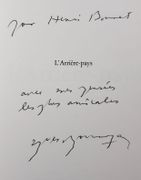 pour Henri Bonnet
L'Arrière-pays
avec mes pensées
les plus amicales
Yves Bonnefoy